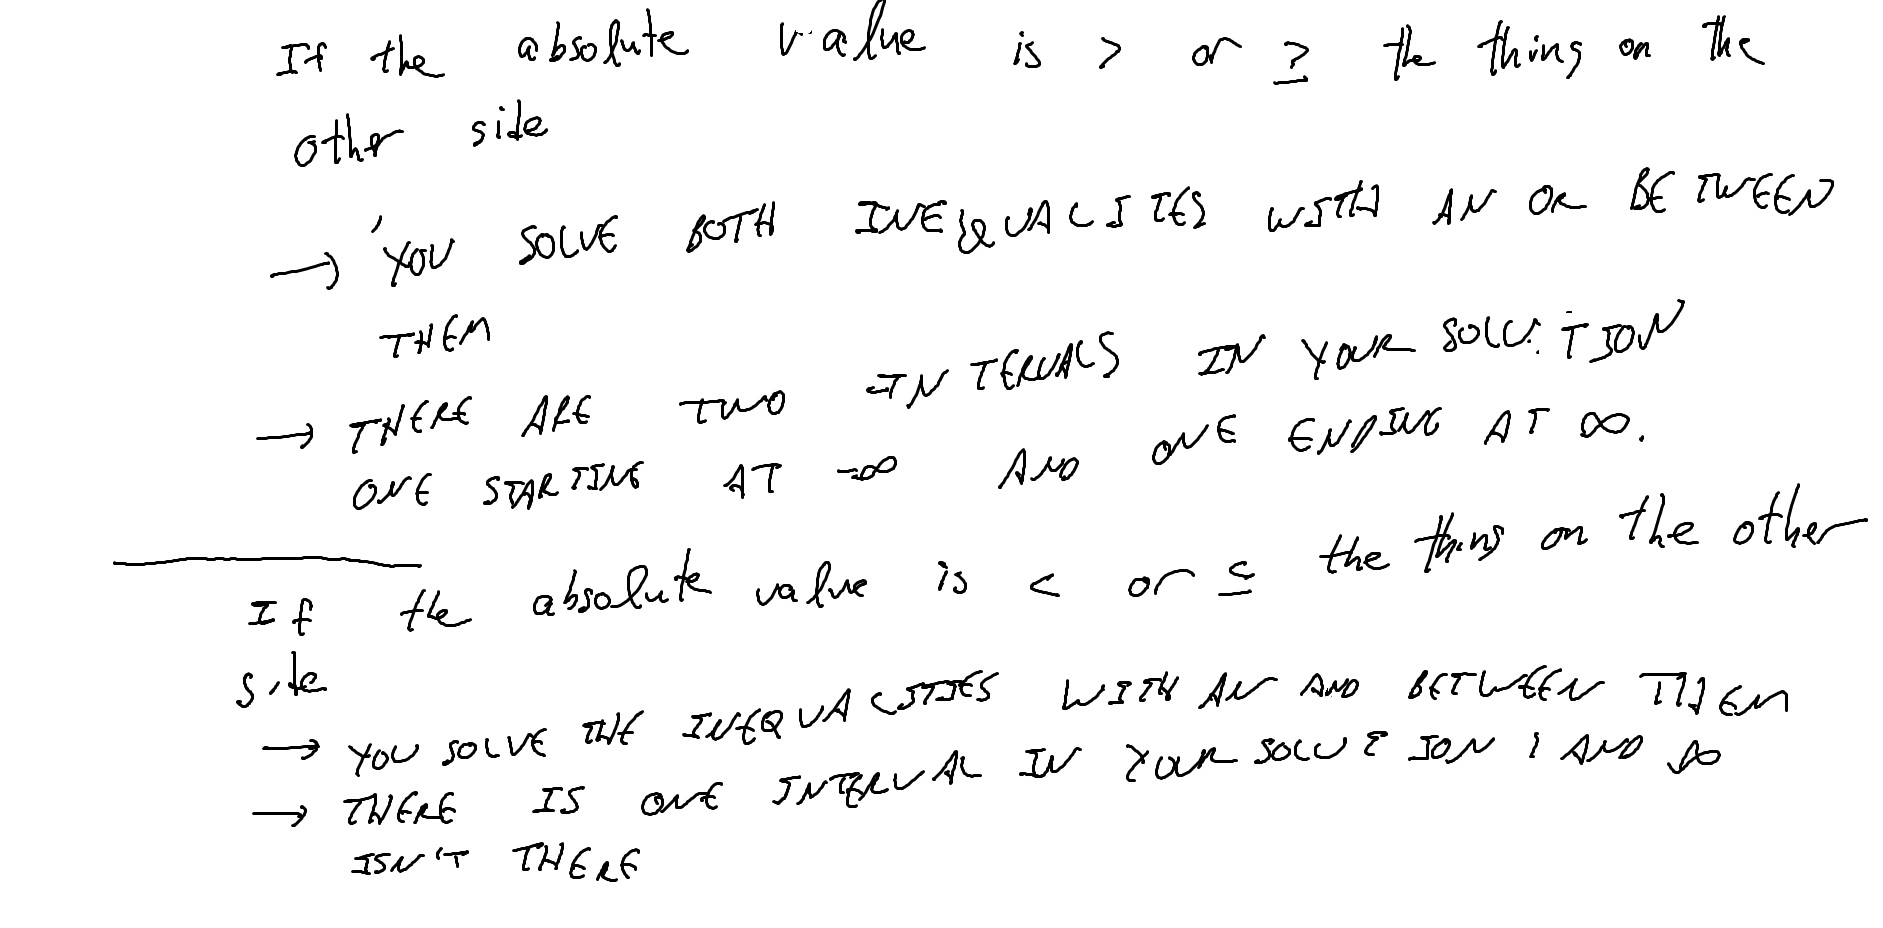 If the absolute value is > or ≥ the thing on the
other side
→ YOU SOLVE BOTH INEQUALITIES WITH AN OR BETWEEN
THEM
→ THERE ARE TWO INTERVALS IN YOUR SOLUTION
ONE STARTING AT -∞ AND ONE ENDING AT ∞.
If the absolute value is < or ≤ the thing on the other
side
→ YOU SOLVE THE INEQUALITIES WITH AN AND BETWEEN THEM
→ THERE IS ONE INTERVAL IN YOUR SOLUTION, AND ∞
ISN'T THERE